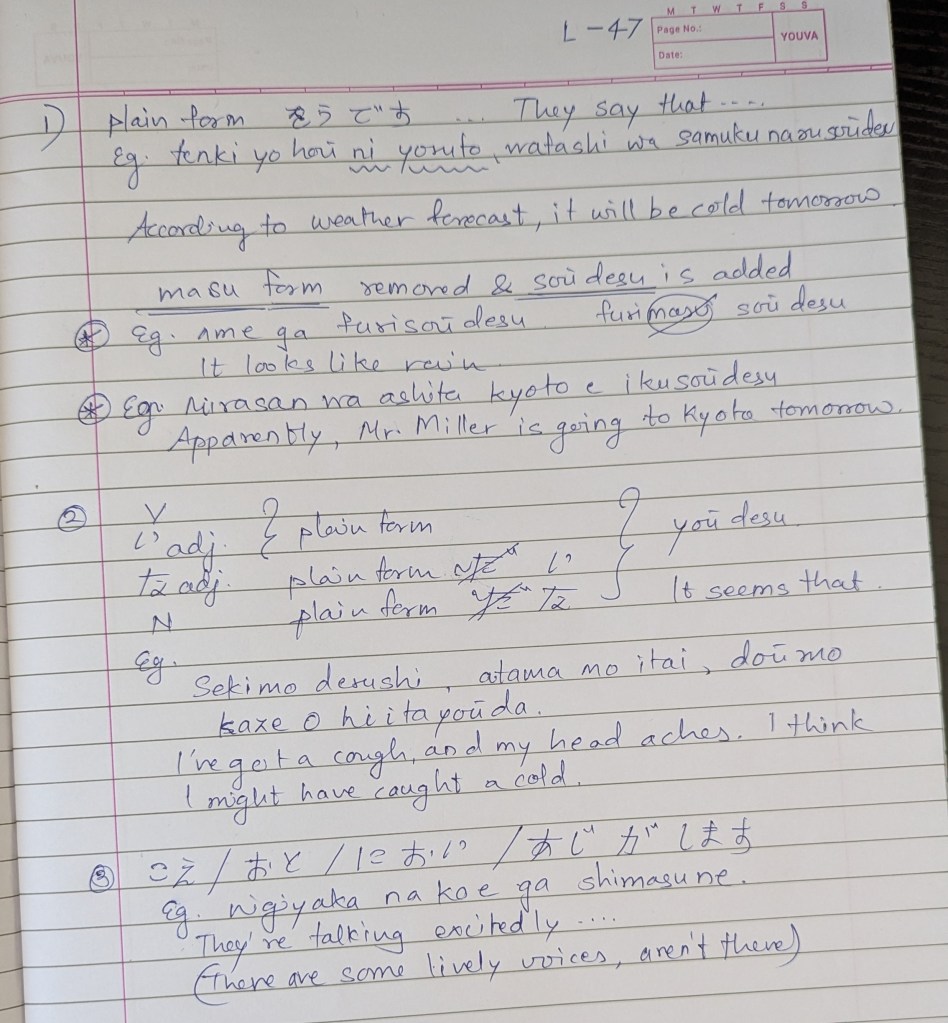 L-47
M T W T F S S
Page No.:
YOUVA
Date:
1) plain form そうです ... They say that ....
Eg. tenki yo hoū ni yoruto, watashi wa samuku naru soūdesu
According to weather forecast, it will be cold tomorrow
masu form removed & soū desu is added
* Eg. Ame ga furisoū desu. furimasu soū desu
It looks like rain
* Eg. Mirasan wa ashita kyoto e ikusoūdesu
Apparently, Mr. Miller is going to Kyoto tomorrow.
② V
い adj. } plain form } yoū desu
な adj. plain form ~だ な
N plain form ~だ の It seems that.
Eg.
Seki mo derushi, atama mo itai, doū mo
kaze o hiita yoūda.
I've got a cough, and my head aches. I think
I might have caught a cold.
③ こえ / おと / におい / あじ が します
Eg. nigiyaka na koe ga shimasu ne.
They're talking excitedly ....
(There are some lively voices, aren't there)